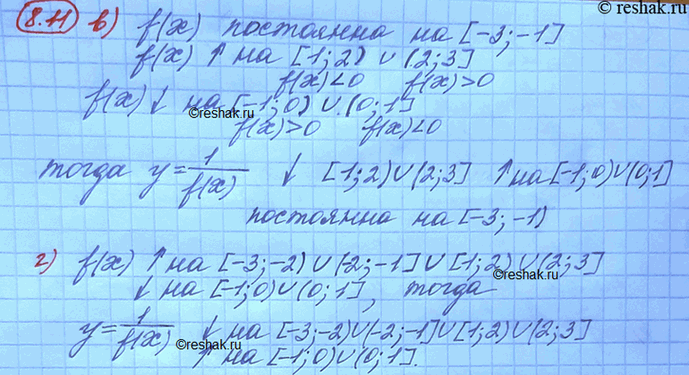 © reshak.ru
8.11 в) f(x) постоянна на [-3;-1]
f(x) ↑ на [1;2) ∪ (2;3]
f(x)<0 f(x)>0
f(x) ↓ на [-1;0) ∪ (0;1]
©reshak.ru
f(x)>0 f(x)<0
тогда y = 1/f(x) ↓ [1;2) ∪ (2;3] ↑ на [-1;0) ∪ (0;1]
©reshak.ru
постоянна на [-3;-1)
г) f(x) ↑ на [-3;-2) ∪ (-2;-1] ∪ [1;2) ∪ (2;3]
©reshak.ru
↓ на [-1;0) ∪ (0;1], тогда
y = 1/f(x) ↓ на [-3;-2) ∪ (-2;-1] ∪ [1;2) ∪ (2;3]
©reshak.ru
↑ на [-1;0) ∪ (0;1].